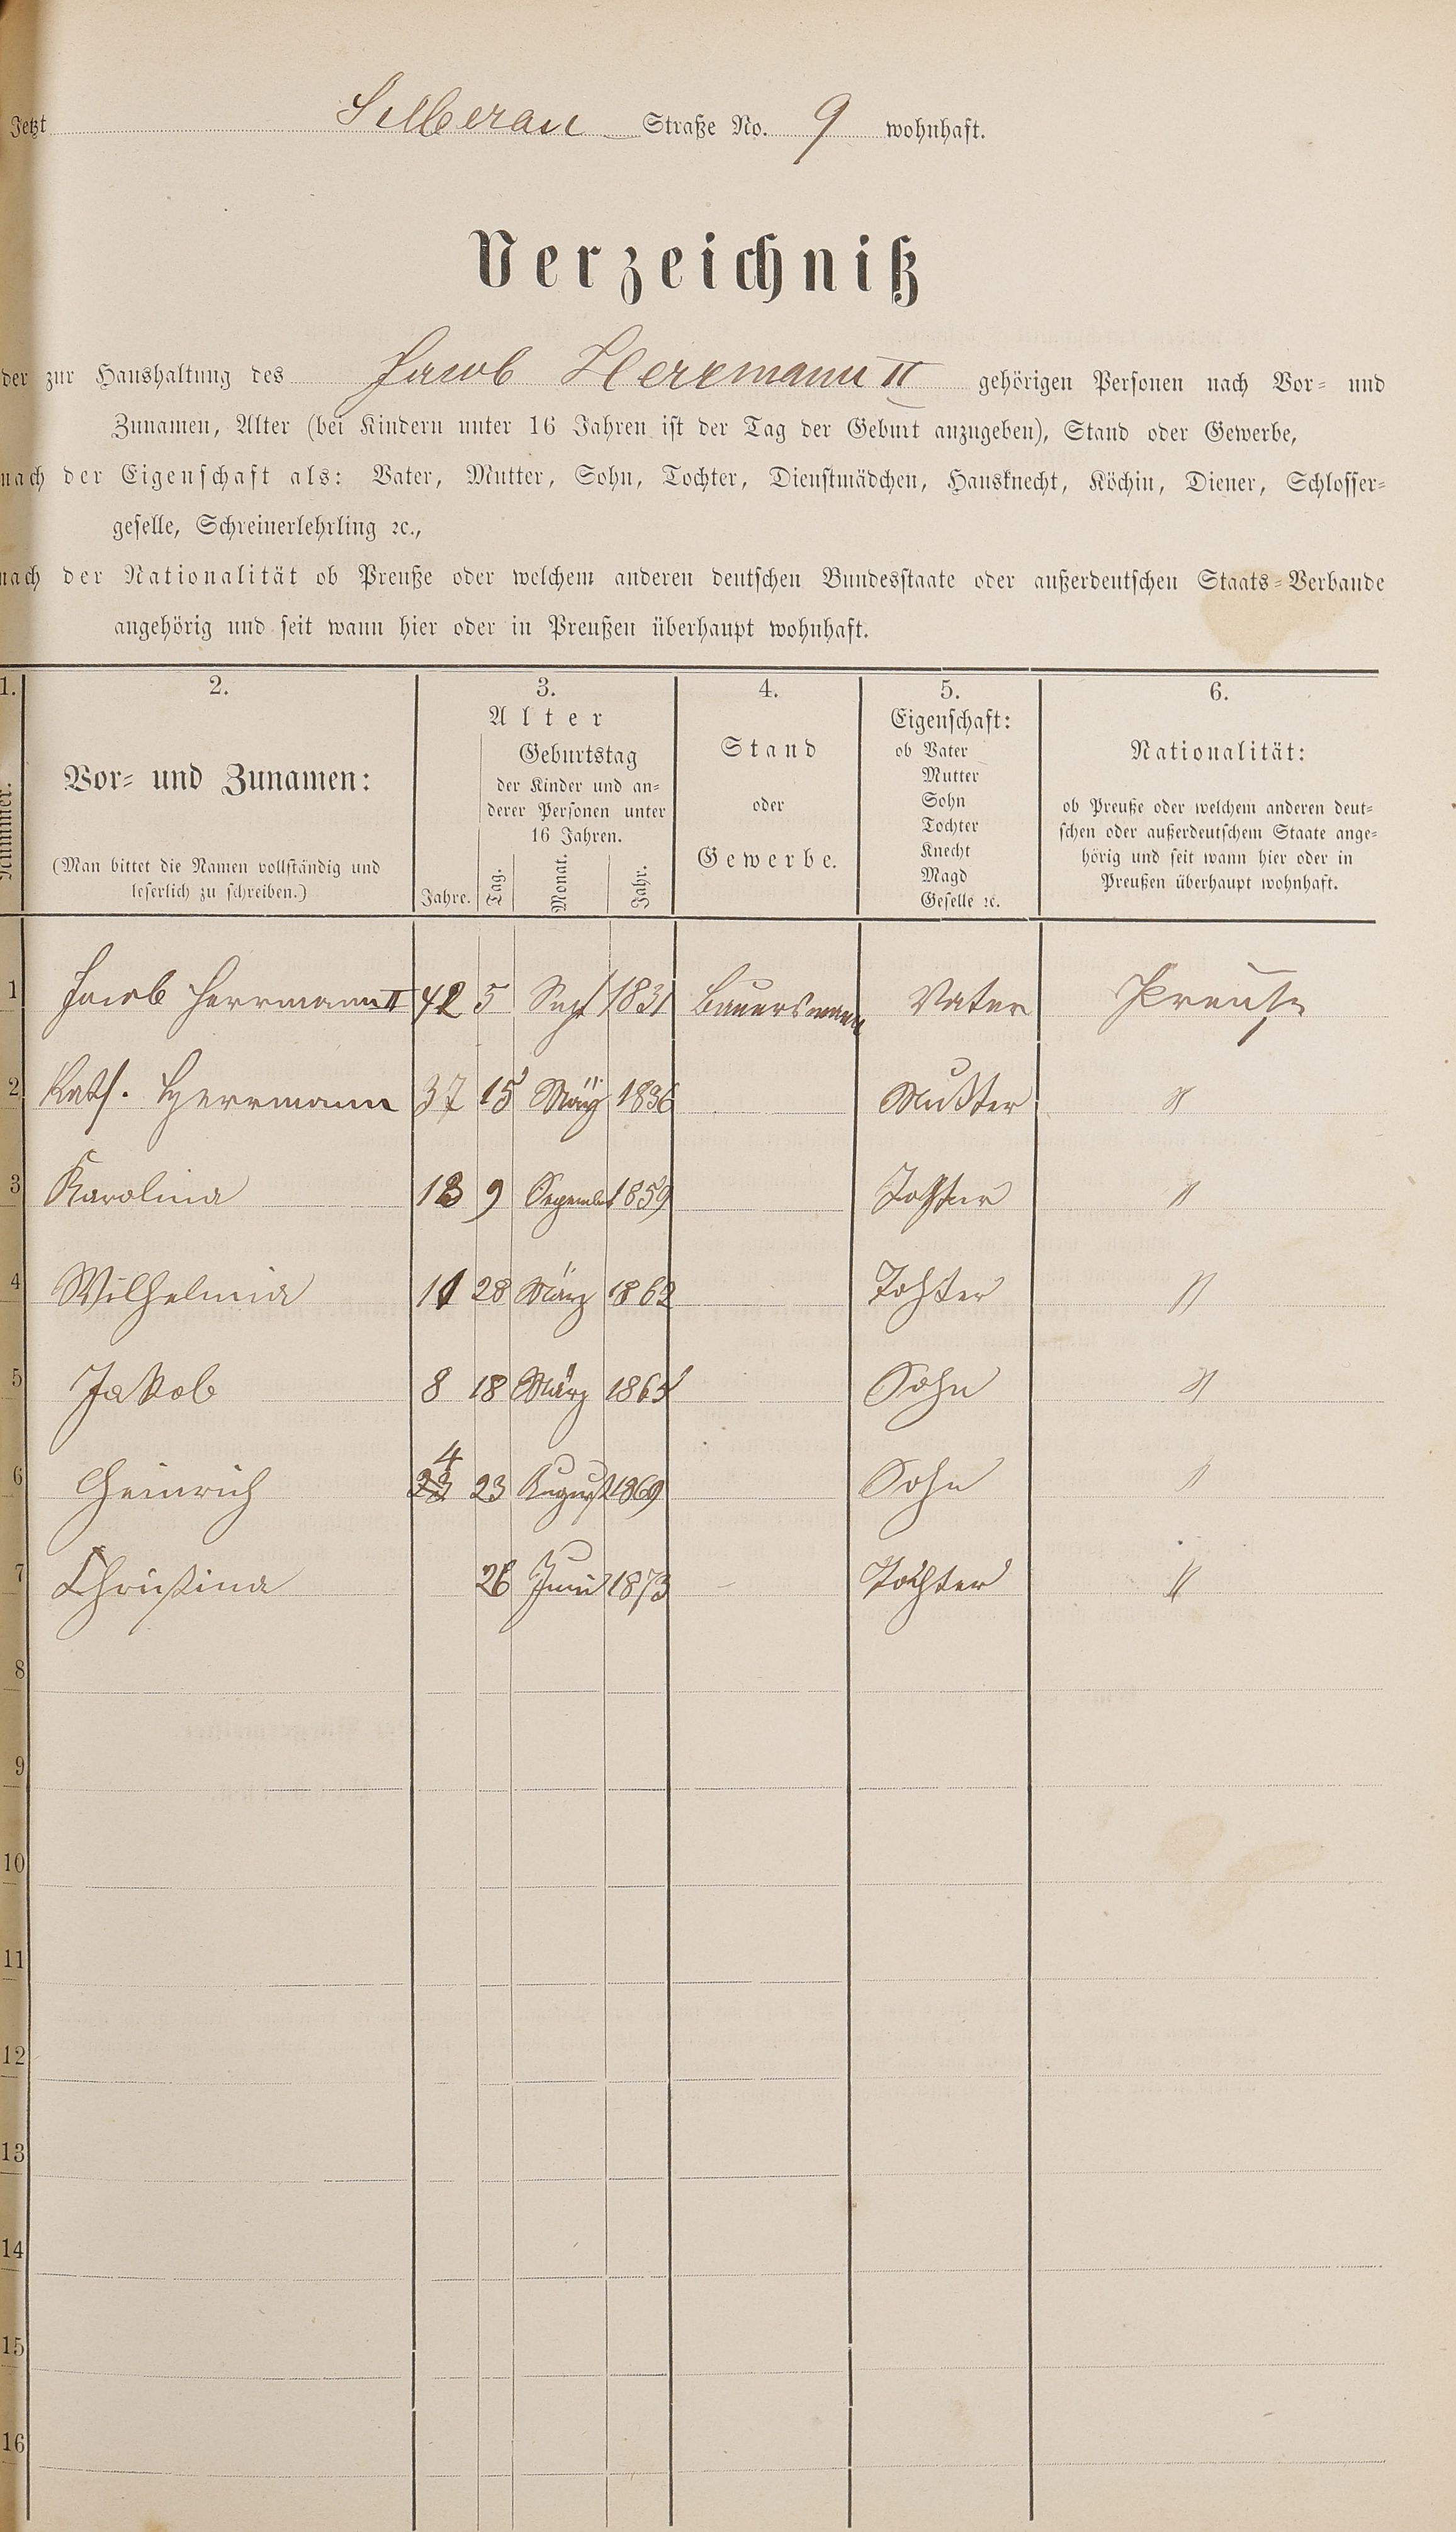 Jetzt Silberau Straße No. 9 wohnhaft.
Verzeichniß
der zur Haushaltung des Jacob Herrmann II gehörigen Personen nach Vor- und
Zunamen, Alter (bei Kindern unter 16 Jahren ist der Tag der Geburt anzugeben), Stand oder Gewerbe,
nach der Eigenschaft als: Vater, Mutter, Sohn, Tochter, Dienstmädchen, Hausknecht, Köchin, Diener, Schlosser-
geselle, Schreinerlehrling ꝛc.,
nach der Nationalität ob Preuße oder welchem anderen deutschen Bundesstaate oder außerdeutschen Staats-Verbande
angehörig und seit wann hier oder in Preußen überhaupt wohnhaft.
1. 2. 3. 4. 5. 6.
Nummer.
Vor- und Zunamen:
(Man bittet die Namen vollständig und
leserlich zu schreiben.)
Alter
Geburtstag
der Kinder und an-
derer Personen unter
16 Jahren.
Jahre. Tag. Monat. Jahr.
Stand
oder
Gewerbe.
Eigenschaft:
ob Vater
Mutter
Sohn
Tochter
Knecht
Magd
Geselle ꝛc.
Nationalität:
ob Preuße oder welchem anderen deut-
schen oder außerdeutschem Staate ange-
hörig und seit wann hier oder in
Preußen überhaupt wohnhaft.
1 Jacob Herrmann II 42 5 Sept 1831 Bauersmann Vater Preuße
2 Kath. Herrmann 37 15 März 1836 Mutter "
3 Karolina 13 9 1859 Tochter "
4 Wilhelmina 11 28 März 1862 Tochter "
5 Jakob 8 18 März 1865 Sohn "
6 Heinrich 4 23 August 1869 Sohn "
7 Christina 26 Juni 1873 Tochter "
8
9
10
11
12
13
14
15
16